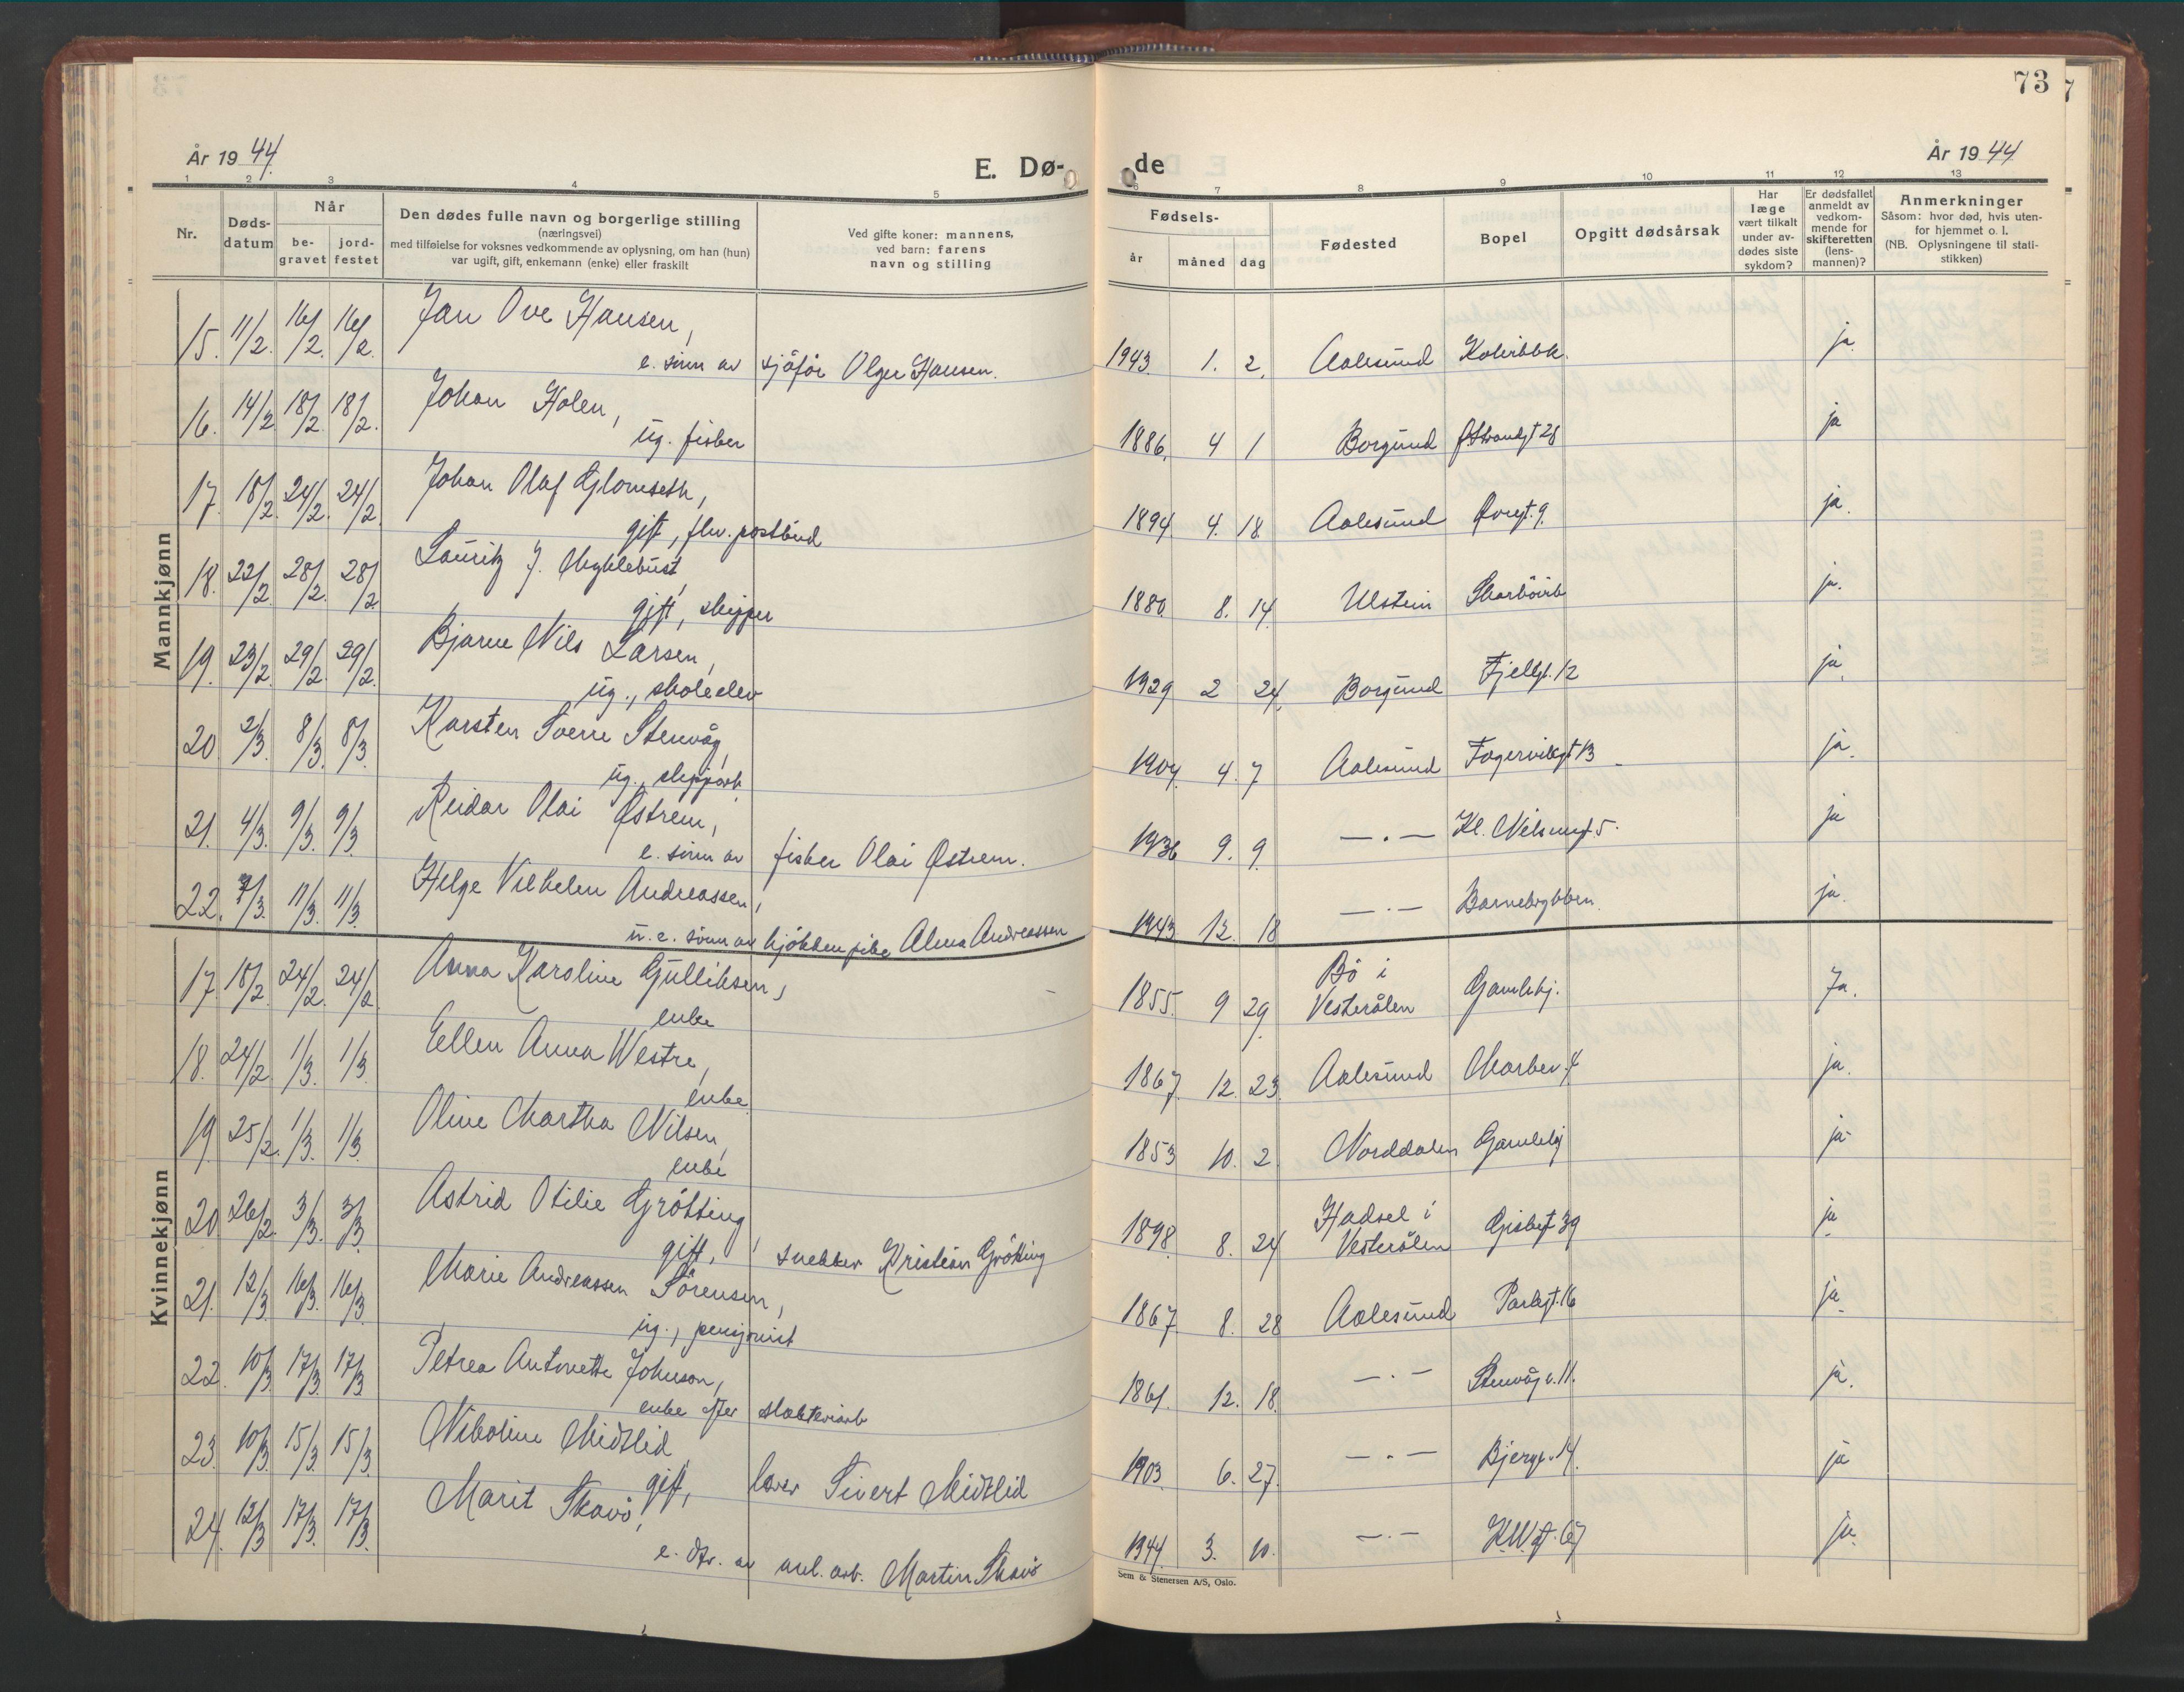 73
År 1944.
E. Dø-
de
År 1944
1 2 3 4 5 6 7 8 9 10 11 12 13
Nr.
Døds-
datum
Når
be-
gravet
jord-
festet
Den dødes fulle navn og borgerlige stilling
(næringsvei)
med tilføielse for voksnes vedkommende av oplysning, om han (hun)
var ugift, gift, enkemann (enke) eller fraskilt
Ved gifte koner: mannens,
ved barn: farens
navn og stilling
Fødsels-
år måned dag
Fødested
Bopel
Opgitt dødsårsak
Har
læge
vært tilkalt
under av-
dødes siste
sykdom?
Er dødsfallet
anmeldt av
vedkom-
mende for
skifteretten
(lens-
mannen)?
Anmerkninger
Såsom: hvor død, hvis uten-
for hjemmet o. l.
(NB. Oplysningene til stati-
stikken)
Mannkjønn
15. 11/2. 16/2. 16/2. Jan Ove Hansen,
e. sønn av sjåfør Olger Hansen. 1943. 1. 2. Aalesund ja
16. 14/2 18/2. 18/2. Johan Holen,
ug. fisker 1886. 4 1 Borgund Ø.Strandgt 28 ja
17. 18/2. 24/2. 24/2. Johan Olaf Glomseth,
gift, flv. postbud 1894. 4. 18. Aalesund Øvregt. 9. ja.
18. 22/2. 28/2. 28/2. Lauritz J. Myklebust,
gift, skipper 1880. 8. 14. Ulstein ja.
19. 23/2. 29/2. 29/2. Bjarne Nils Larsen,
ug., skoleelev 1929 2 24. Borgund Fjellgt. 12 ja.
20 2/3. 8/3. 8/3. Karsten Sverre Stenvåg,
ug., skipparb. 1904. 4. 7 Aalesund Fagervikgt 13 ja.
21. 4/3. 9/3. 9/3. Reidar Olai Østrem,
e. sønn av fisker Olai Østrem. 1936 9. 9. — . — Kl. Nilsengt. 5. ja
22. 7/3. 11/3. 11/3. Helge Vilhelm Andreassen,
u. e. sønn av kjøkkenpike Alma Andreassen 1943. 12. 18 — . — Barnekrybben. ja.
Kvinnekjønn
17. 18/2. 24/2. 24/2. Anna Karoline Gulliksen,
enke 1855. 9 29. Bö i
Vesterålen Gamlehj. Ja.
18. 24/2 1/3. 1/3. Ellen Anna Westre,
enke. 1867. 12. 23. Aalesund ja.
19. 25/2. 1/3. 1/3. Oline Martha Nilsen,
enke 1853 10. 2. Norddalen Gamlehj ja
20 26/2. 3/3. 3/3. Astrid Otilie Grötting,
gift, snekker Kristian Grötting 1898. 8. 24 Hadsel i
Vesterålen Giskegt 39 ja
21. 12/3. 16/3. 16/3. Marie Andreassen Sörensen,
ug., pensjonist 1867. 8. 28 Aalesund Parkgt. 16 ja.
22. 10/3. 17/3. 17/3. Petrea Antonette Johnson,
enke efter slakteriarb 1861. 12. 18. — . — Stenvåg v. 11. ja.
23. 10/3. 15/3. 15/3. Nikoline Midtlid
gift, lærer Sivert Midtlid 1903. 6. 27. — . — ja
24. 12/3. 17/3. 17/3. Marit Skavö,
e. dtr. av anl. arb. Martin Skavö 1944. 3. 10. — . — ja.
Sem & Stenersen A/S, Oslo.